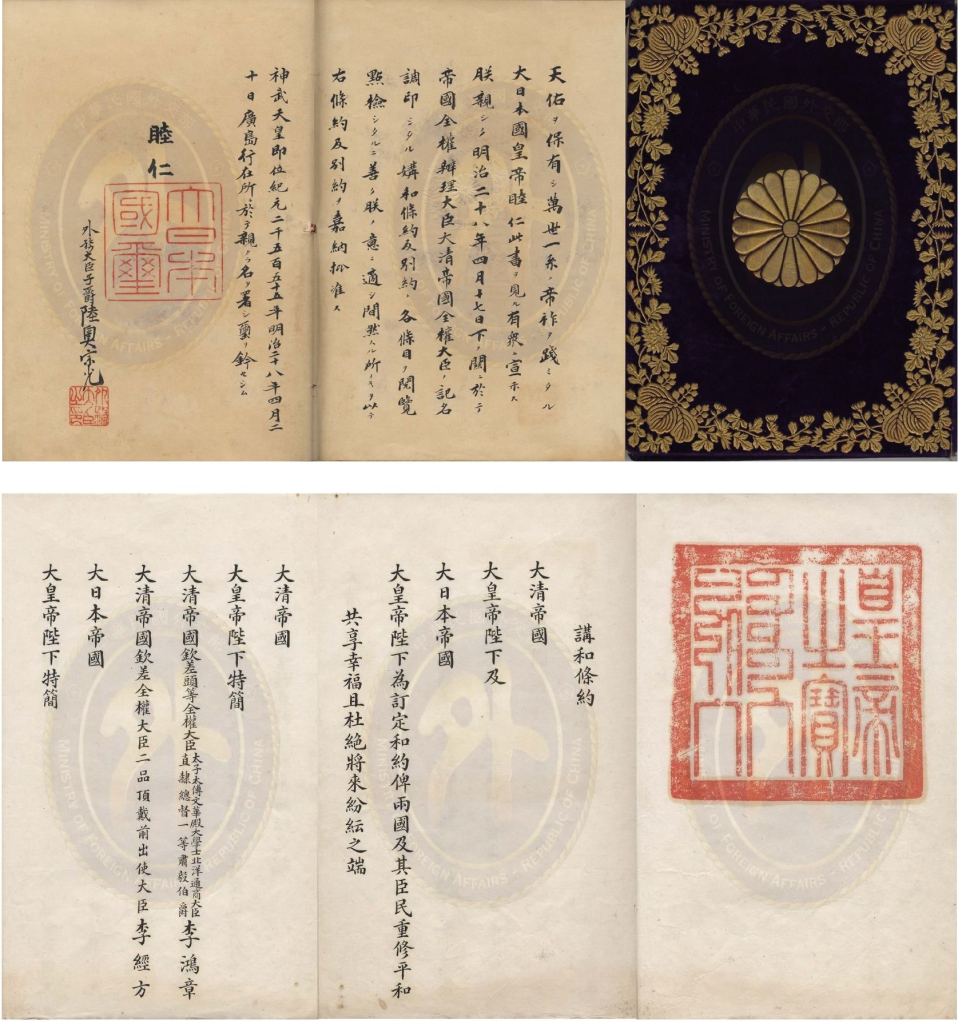 天佑ヲ保有シ萬世一系ノ帝祚ヲ踐ミタル
大日本國皇帝睦仁此書ヲ見ル有衆ニ宣示ス
朕親シク明治二十八年四月十七日下ノ關ニ於テ
帝國全權辦理大臣大清帝國全權大臣ノ記名
調印シタル媾和條約及別約ノ各條目ヲ閲覽
點檢シタルニ善ク朕ノ意ニ適シ間然スル所ナキヲ以テ
右條約及別約ヲ嘉納批准ス
神武天皇即位紀元二千五百五十五年明治二十八年四月二
十日廣島行在所ニ於テ親ラ名ヲ署シ璽ヲ鈐セシム
睦仁
大日本國璽
外務大臣子爵陸奧宗光
MINISTRY OF FOREIGN AFFAIRS · REPUBLIC OF CHINA
皇帝之寶
講和條約
大清帝國
大皇帝陛下及
大日本帝國
大皇帝陛下為訂定和約俾兩國及其臣民重修平和
共享幸福且杜絕將來紛紜之端
大清帝國
大皇帝陛下特簡
大清帝國欽差頭等全權大臣太子太傅文華殿大學士北洋通商大臣直隸總督一等肅毅伯爵李鴻章
大清帝國欽差全權大臣二品頂戴前出使大臣李經方
大日本帝國
大皇帝陛下特簡